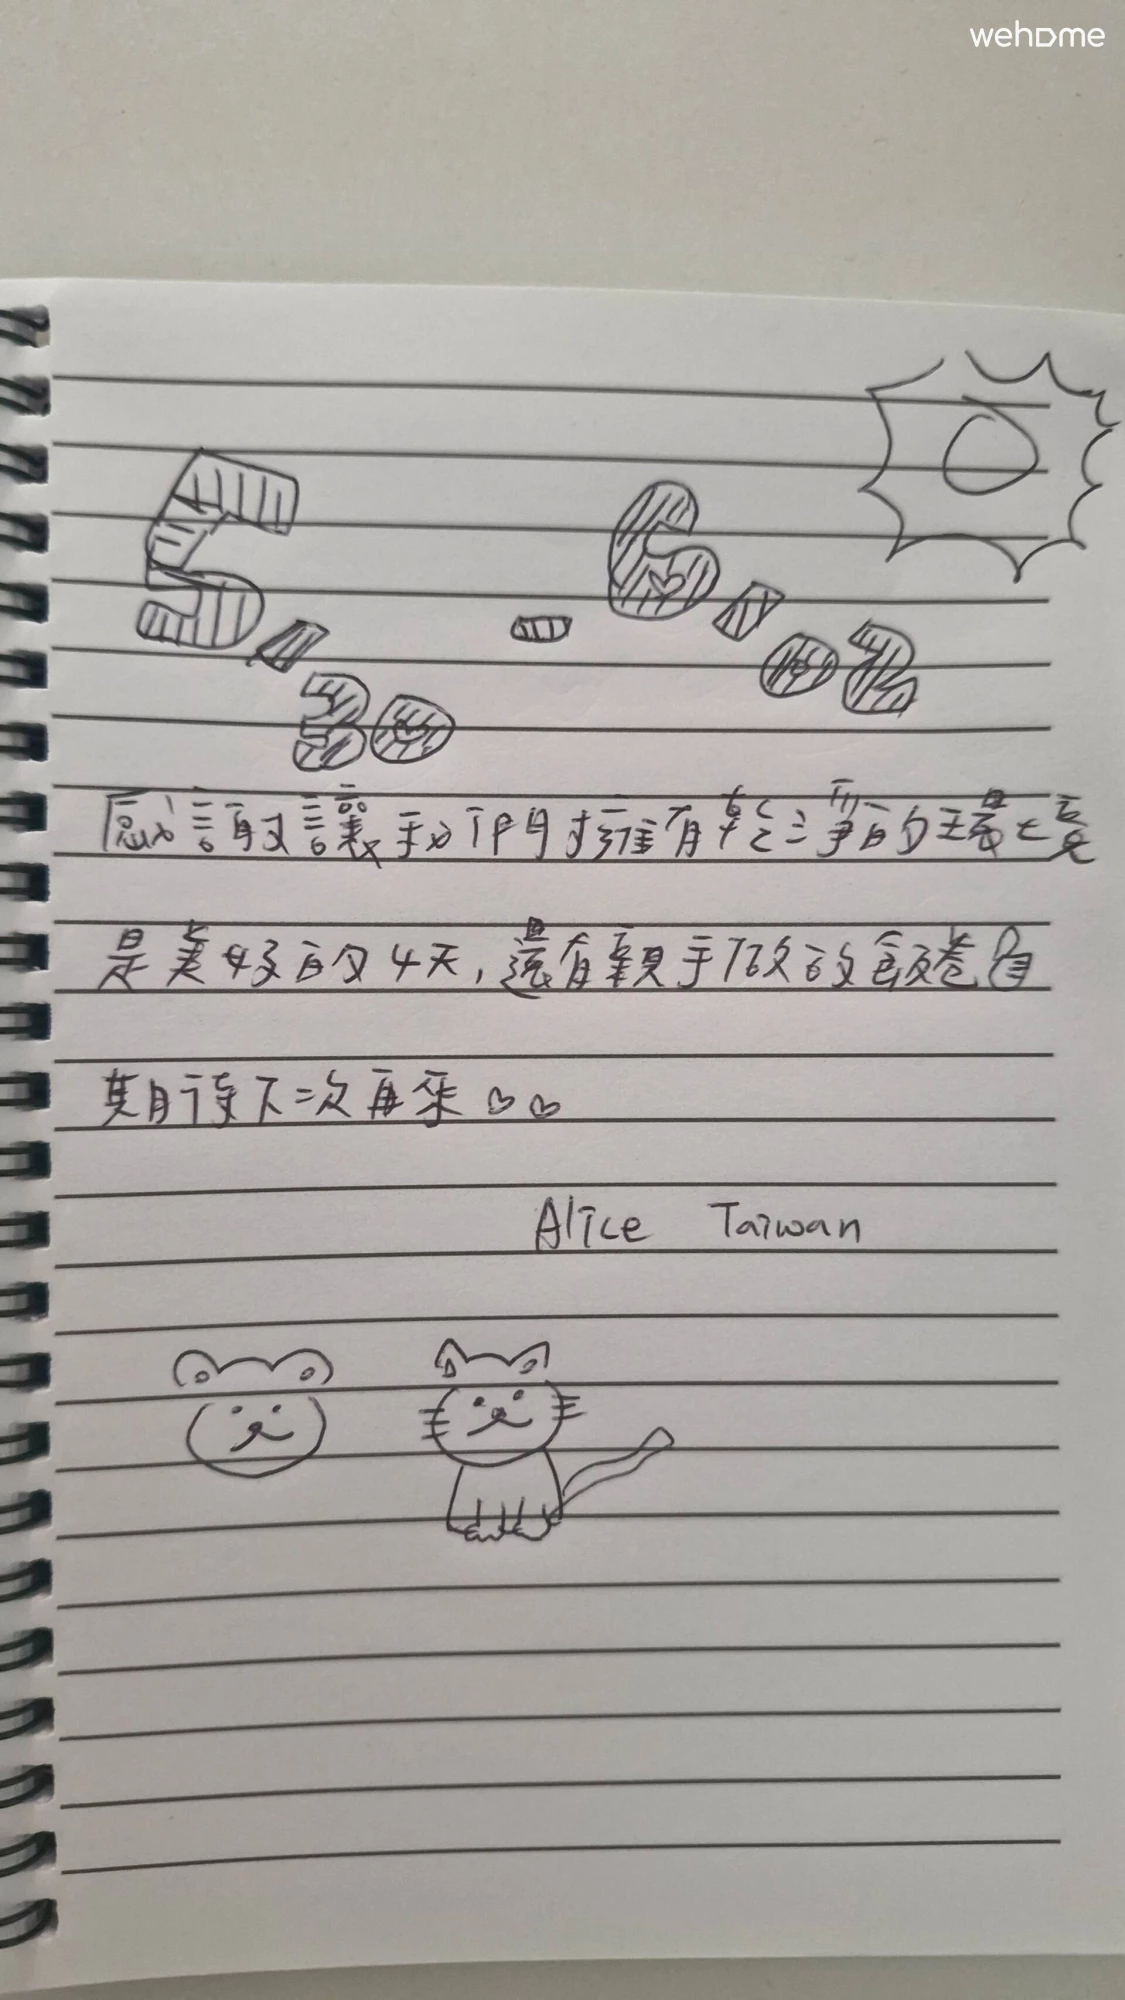 wehome
5/30 - 6/02
感謝讓我們擁有乾淨的環境
是美好的4天,還有親手做的飯卷
期待下次再來♡♡
Alice Taiwan